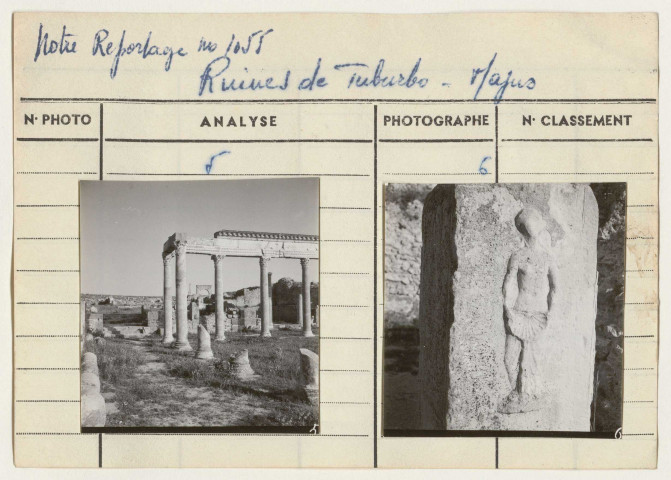 Notre Reportage no 1055
Ruines de Tuburbo - Majus
N° PHOTO ANALYSE PHOTOGRAPHE N° CLASSEMENT
5 6
5 6